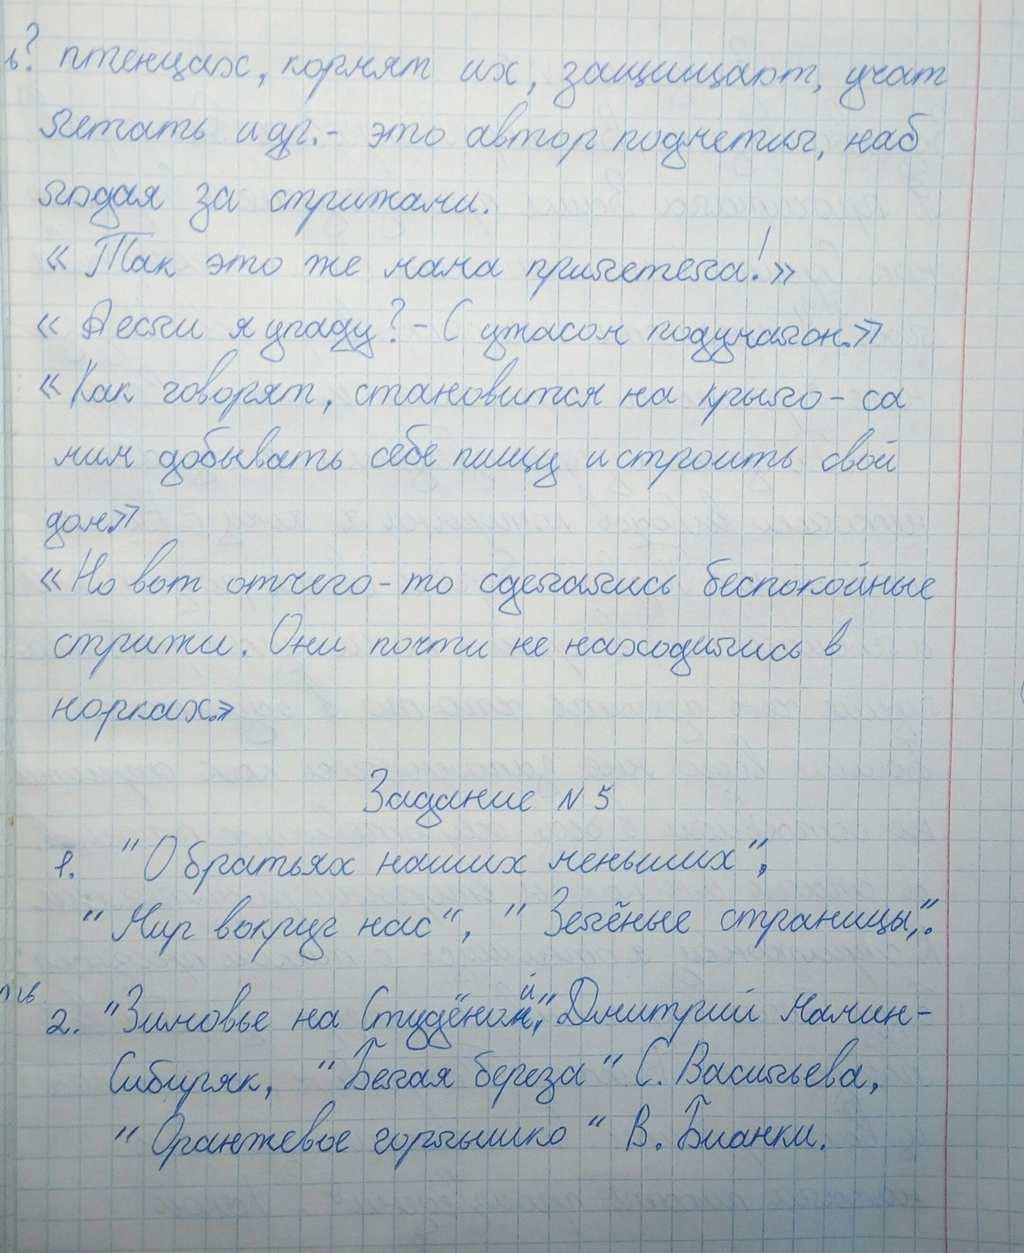 ь? птенцах, кормят их, защищают, учат
летать и др. - это автор подметил, наб
людая за стрижами.
« Так это же мама прилетела! »
« А если я упаду? - С ужасом подумалон.»
«Как говорят, становится на крыло - са
мим добывать себе пищу и строить свой
дом»
«Но вот отчего-то сделались беспокойные
стрижи. Они почти не находились в
норках.»
Задание N 5
1. "О братьях наших меньших",
"Мир вокруг нас", "Зелёные страницы,".
2. "Зимовье на Студёной," Дмитрий Мамин-
Сибиряк, "Белая береза" С. Васильева,
"Оранжевое горлышко" В. Бианки.